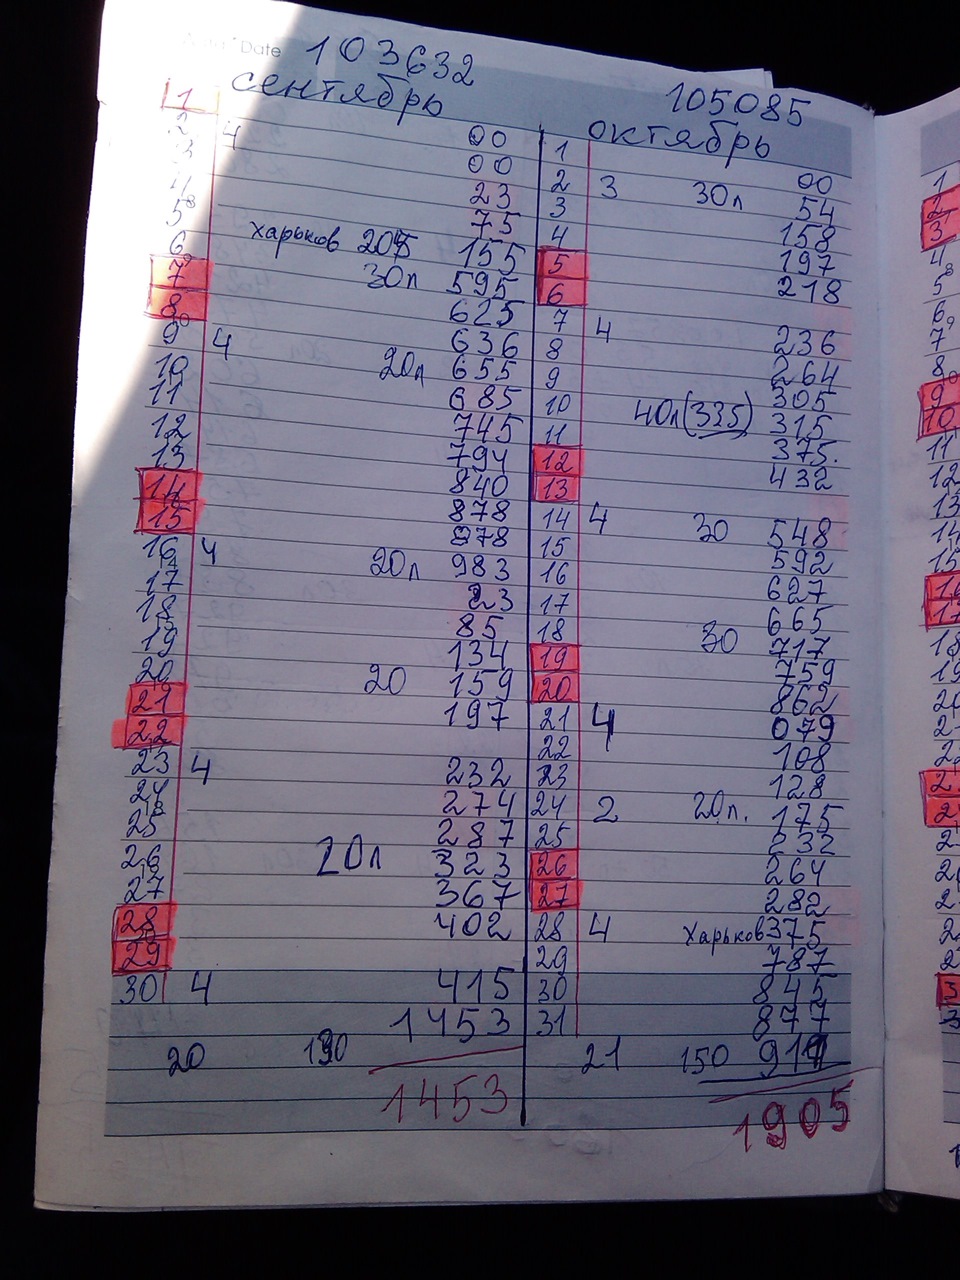 Date 103632
сентябрь
1 00
2 4 00
3 23
4 75
5 8 харьков 205 155
6 30л 595
7 625
8 636
9 4 20л 655
10 685
11 745
12 794
13 840
14 878
15 878
16 4 20л 983
17 23
18 85
19 134
20 20 159
21 197
22
23 4 232
24 274
25 287
26 20л 323
27 367
28 402
29
30 4 415
1453
20 190
1453
105085
октябрь
1 00
2 3 30л 54
3 158
4 197
5 218
6
7 4 236
8 264
9 305
10 40л(335) 315
11 375.
12 432
13
14 4 30 548
15 592
16 627
17 665
18 30 717
19 759
20 862
21 4 079
22 108
23 128
24 2 20л. 175
25 232
26 264
27 282
28 4 Харьков 375
29 787
30 845
31 877
21 150
1905
1
2
3
4
5 8
6
7 9
8
9
10
11
12
13
14
15
16
17
18
19